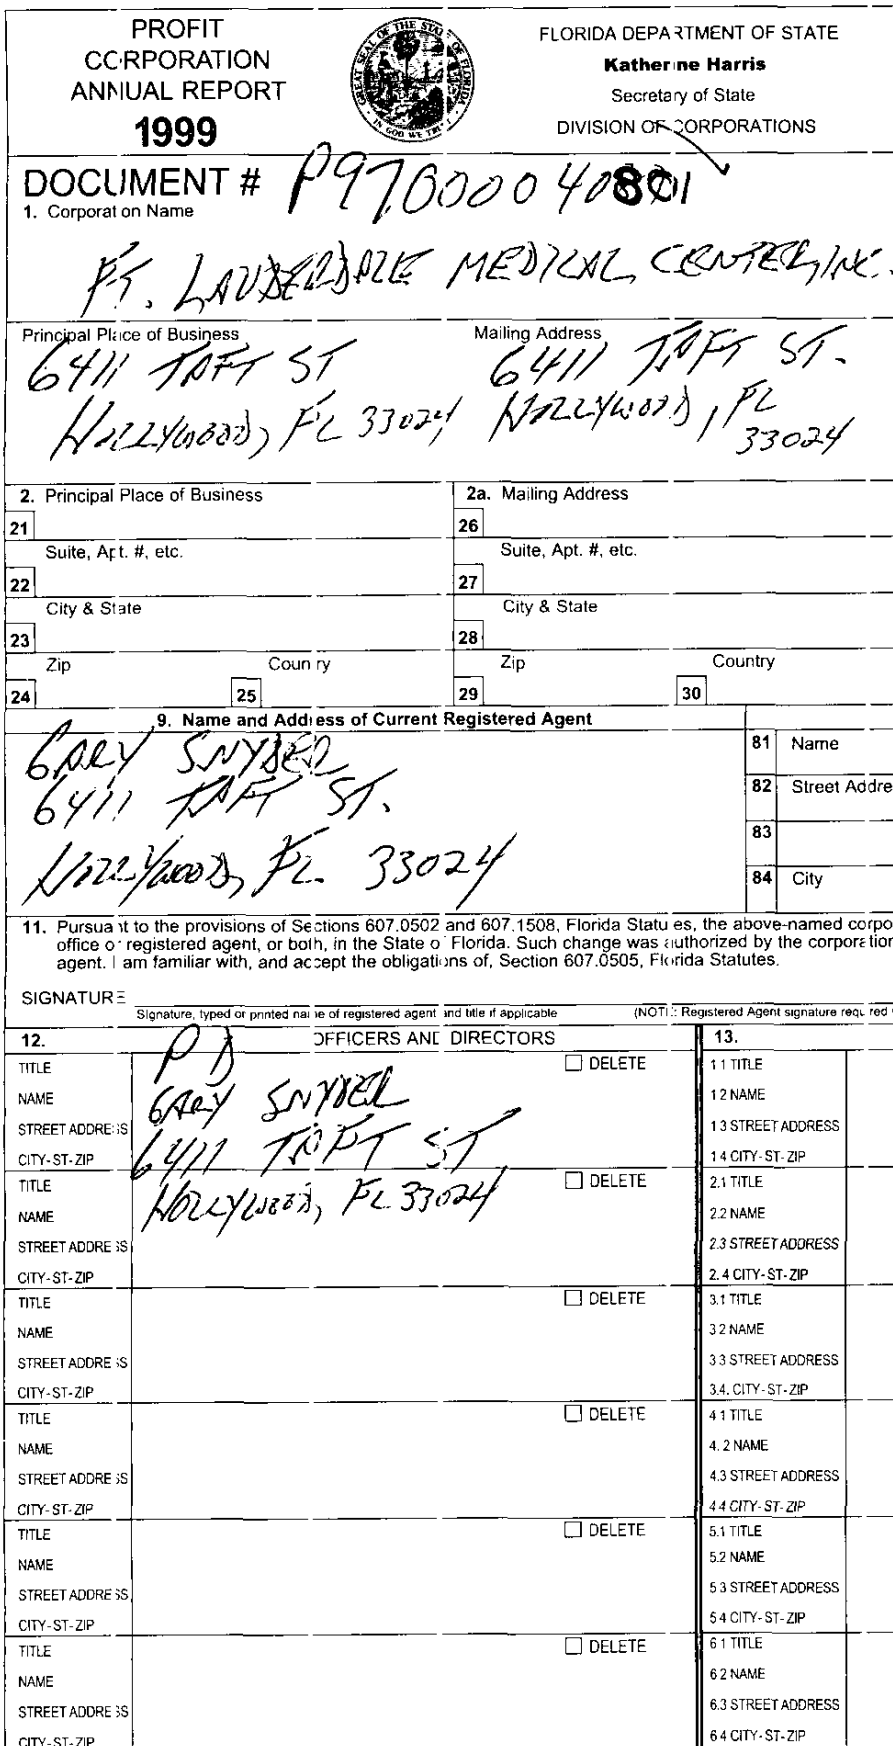 PROFIT
CORPORATION
ANNUAL REPORT
1999
GREAT SEAL OF THE STATE OF FLORIDA
IN GOD WE TRUST
FLORIDA DEPARTMENT OF STATE
Katherine Harris
Secretary of State
DIVISION OF CORPORATIONS
DOCUMENT #
1. Corporation Name
FT. LAUDERDALE MEDICAL CENTER, INC.
Principal Place of Business
6411 TAFT ST
HOLLYWOOD, FL 33024
Mailing Address
6411 TAFT ST.
HOLLYWOOD, FL
33024
2. Principal Place of Business
2a. Mailing Address
21
26
Suite, Apt. #, etc.
Suite, Apt. #, etc.
22
27
City & State
City & State
23
28
Zip
Country
Zip
Country
24
25
29
30
9. Name and Address of Current Registered Agent
GARY SNYDER
6411 TAFT ST.
HOLLYWOOD, FL. 33024
81 Name
82 Street Addre
83
84 City
11. Pursuant to the provisions of Sections 607.0502 and 607.1508, Florida Statutes, the above-named corpo
office or registered agent, or both, in the State of Florida. Such change was authorized by the corporation
agent. I am familiar with, and accept the obligations of, Section 607.0505, Florida Statutes.
SIGNATURE
Signature, typed or printed name of registered agent and title if applicable
(NOTE: Registered Agent signature required
12. OFFICERS AND DIRECTORS
13.
TITLE PD DELETE
NAME GARY SNYDER
STREET ADDRESS 6411 TAFT ST
CITY-ST-ZIP HOLLYWOOD, FL 33024
1.1 TITLE
1.2 NAME
1.3 STREET ADDRESS
1.4 CITY-ST-ZIP
TITLE DELETE
NAME
STREET ADDRESS
CITY-ST-ZIP
2.1 TITLE
2.2 NAME
2.3 STREET ADDRESS
2.4 CITY-ST-ZIP
TITLE DELETE
NAME
STREET ADDRESS
CITY-ST-ZIP
3.1 TITLE
3.2 NAME
3.3 STREET ADDRESS
3.4. CITY-ST-ZIP
TITLE DELETE
NAME
STREET ADDRESS
CITY-ST-ZIP
4.1 TITLE
4.2 NAME
4.3 STREET ADDRESS
4.4 CITY-ST-ZIP
TITLE DELETE
NAME
STREET ADDRESS
CITY-ST-ZIP
5.1 TITLE
5.2 NAME
5.3 STREET ADDRESS
5.4 CITY-ST-ZIP
TITLE DELETE
NAME
STREET ADDRESS
CITY-ST-ZIP
6.1 TITLE
6.2 NAME
6.3 STREET ADDRESS
6.4 CITY-ST-ZIP